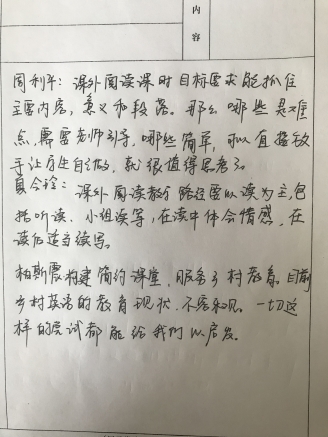 内
容
周利平：课外阅读课时目标要求能抓住
主要内容，意义和段落。那么哪些是难
点，需要老师引导，哪些简单，可以直接放
手让学生自己做，就很值得思考了。
课外阅读教学路径要以读为主，包
括听读、小组读等，在读中体会情感，在
读后适当续写。
柏斯震构建简约课堂，服务乡村教育。目前
乡村英语的教育现状，不容乐观。一切这
样的尝试都能给我们以启发。